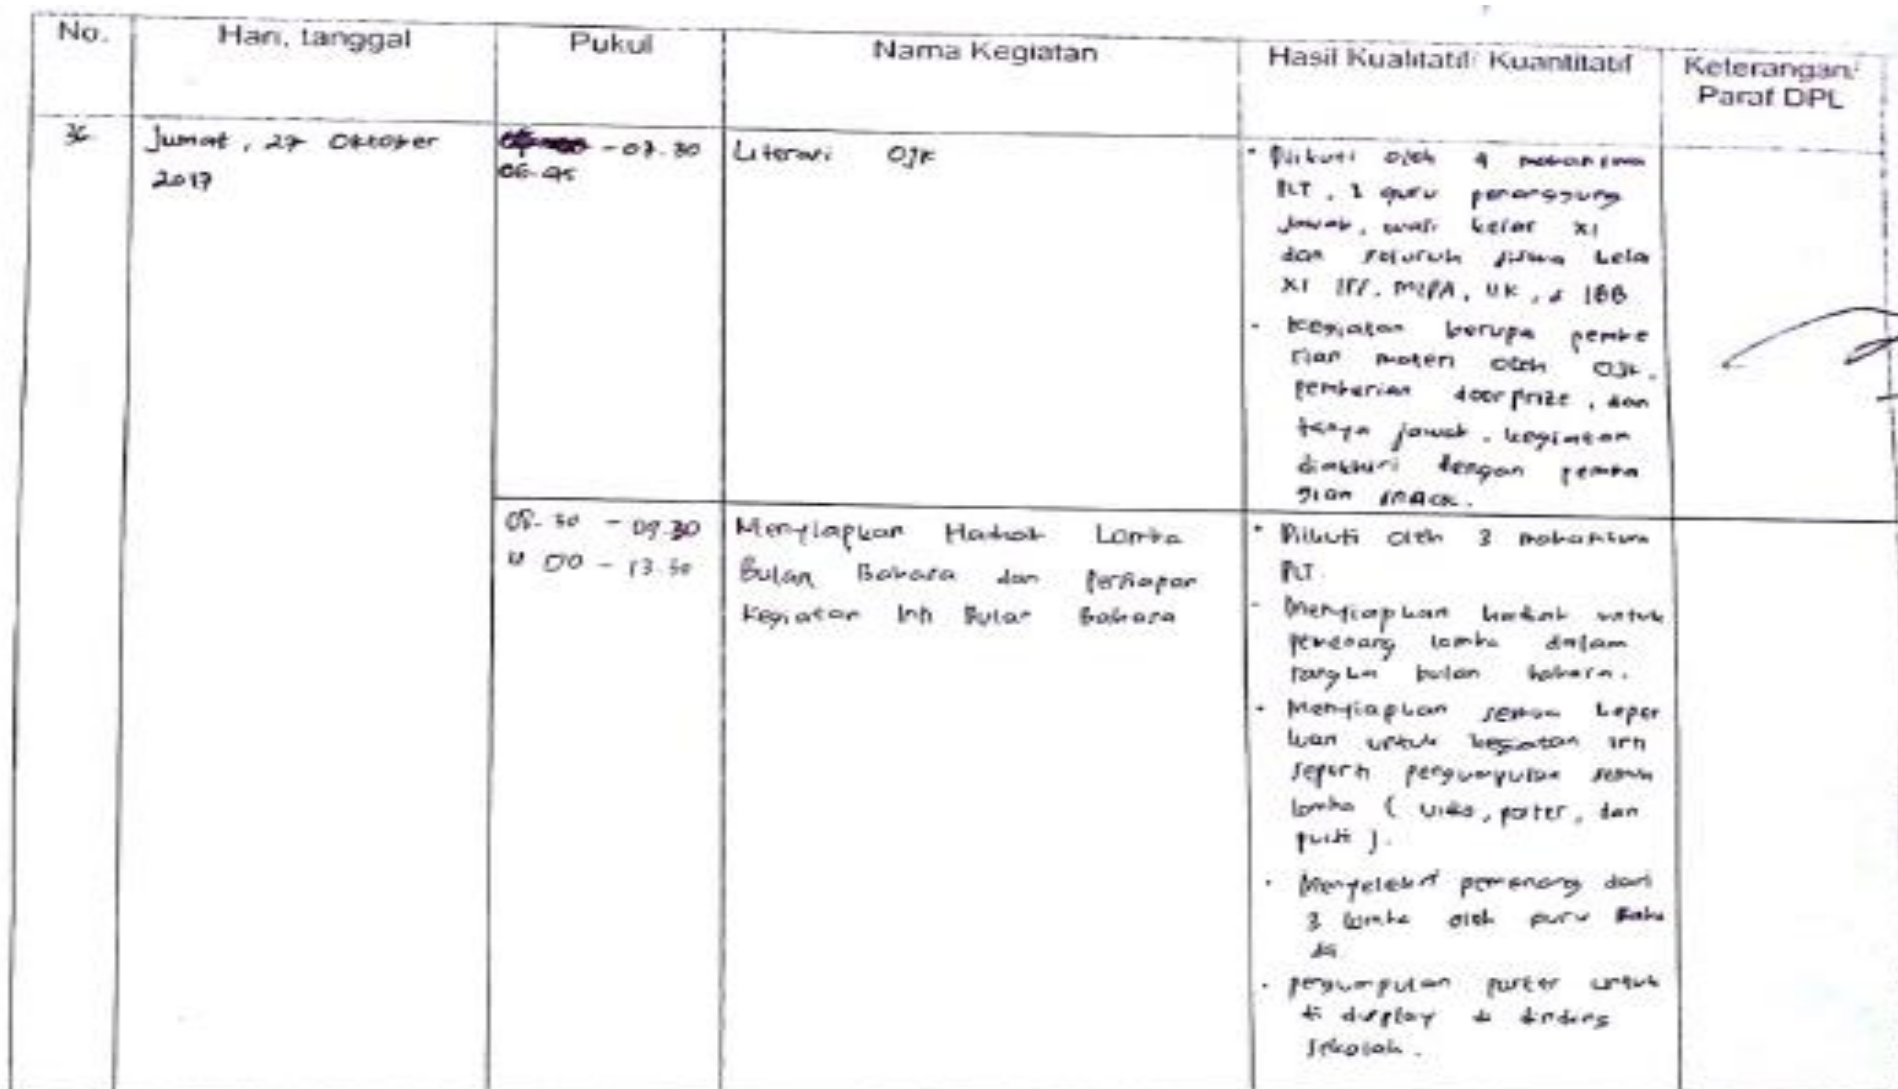 No.
Hari, tanggal
Pukul
Nama Kegiatan
Hasil Kualitatif/ Kuantitatif
Keterangan/
Paraf DPL
36
Jumat, 27 Oktober
2017
- 07.30
06.45
Literasi OJK
- Diikuti oleh 4 mahasiswa
PLT, 1 guru penanggung
jawab, wali kelas XI
dan seluruh siswa kela
XI IPS, MIPA, & IBB
- Kegiatan berupa pembe
rian materi oleh OJK,
pemberian doorprize, dan
tanya jawab. kegiatan
diakhiri dengan pemba
gian snack.
08.30 - 09.30
11.00 - 13.30
Menyiapkan Hadiah Lomba
Bulan Bahasa dan Persiapan
Kegiatan Inti Bulan Bahasa
- Diikuti oleh 3 mahasiswa
PLT.
- Menyiapkan hadiah untuk
pemenang lomba dalam
rangka bulan bahasa.
- Menyiapkan semua keper
luan untuk kegiatan inti
seperti pengumpulan semua
lomba ( video, poster, dan
puisi ).
- Menyeleksi pemenang dari
3 lomba oleh guru Baha
sa
- pengumpulan poster untuk
di display di dinding
sekolah.